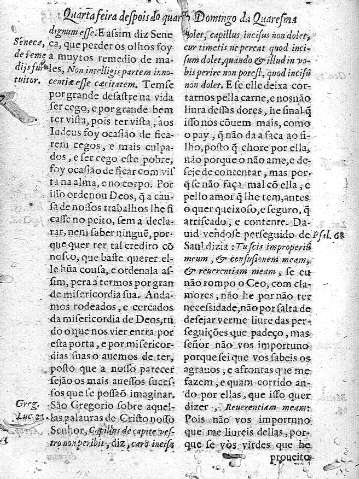 Quarta feira despois do quarto Domingo da Quaresma
dignum esse. E assim diz Sene
ca, que perder os olhos foy
a muytos remedio de ma-
les, Non intelligis partem inno-
centiæ esse cæcitatem. Temse
por grande desastre na vida
ser cego, e por grande bem
ter vista, pois ter vista, aos
Iudeus foy ocasião de fica-
rem cegos, e mais culpa-
dos, e ser cego este pobre,
foy ocasião de ficar com vis-
ta na alma, e no corpo. Por
isso ordenou Deos, q̃ a cau
sa de nossos trabalhos lhe fi
casse no peito, sem a decla-
rar, nem saber ninguẽ, por-
que quer ter tal credito cõ
nosco, que baste querer el-
le hũa cousa, e ordenala as-
sim, pera a termos por gran
de misericordia sua. Anda-
mos rodeados, e cercados
da misericordia de Deos, tu
do o que nos vier entre por
esta porta, e por misericor-
dias suas o auemos de ter,
posto que a nosso parecer
sejão os mais auessos suces-
sos que se possão imaginar.
São Gregorio sobre aquel-
las palauras de Christo nosso
Senhor, Capillus de capite ves-
tro non peribit, diz, caro incisa
Seneca,
de
tuitor.
Greg.
Luc. 21.
dolet, capillus incisus non dolet,
cur timetis ne pereat quod inci-
sum dolet, quando & illud in vo-
bis perire non potest, quod incisũ
non dolet. E se elle deixa cor-
tarnos pella carne, e nos não
liura dessas dores, he sinal q̃
isso nos cõuem mais, como
o pay, q̃ não dá a faca ao fi-
lho, posto q̃ chore por ella,
não porque o não ame, e de-
seje de contentar, mas por-
q̃ se não faça mal cõ ella, e
pello amor q̃ lhe tem, antes
o quer queixoso, e seguro, q̃
arriscado, e contente. Da-
uid vendose perseguido de
Saul dizia: Tu scis improperiũ
meum, & confusionem meam,
& reuerentiam meam, se eu
não rompo o Ceo, com cla-
mores, não he por não ter
necessidade, não por falta de
desejar verme liure das per-
seguições que padeço, mas
senhor não vos importuno
porque sei que vos sabeis os
agrauos, e afrontas que me
fazem, e quam corrido an-
do por ellas, que isso quer
dizer, Reuerentiam meam:
Pois não vos importuno
que me liureis dellas, por-
que se vòs virdes que he
proueito
Psal. 68